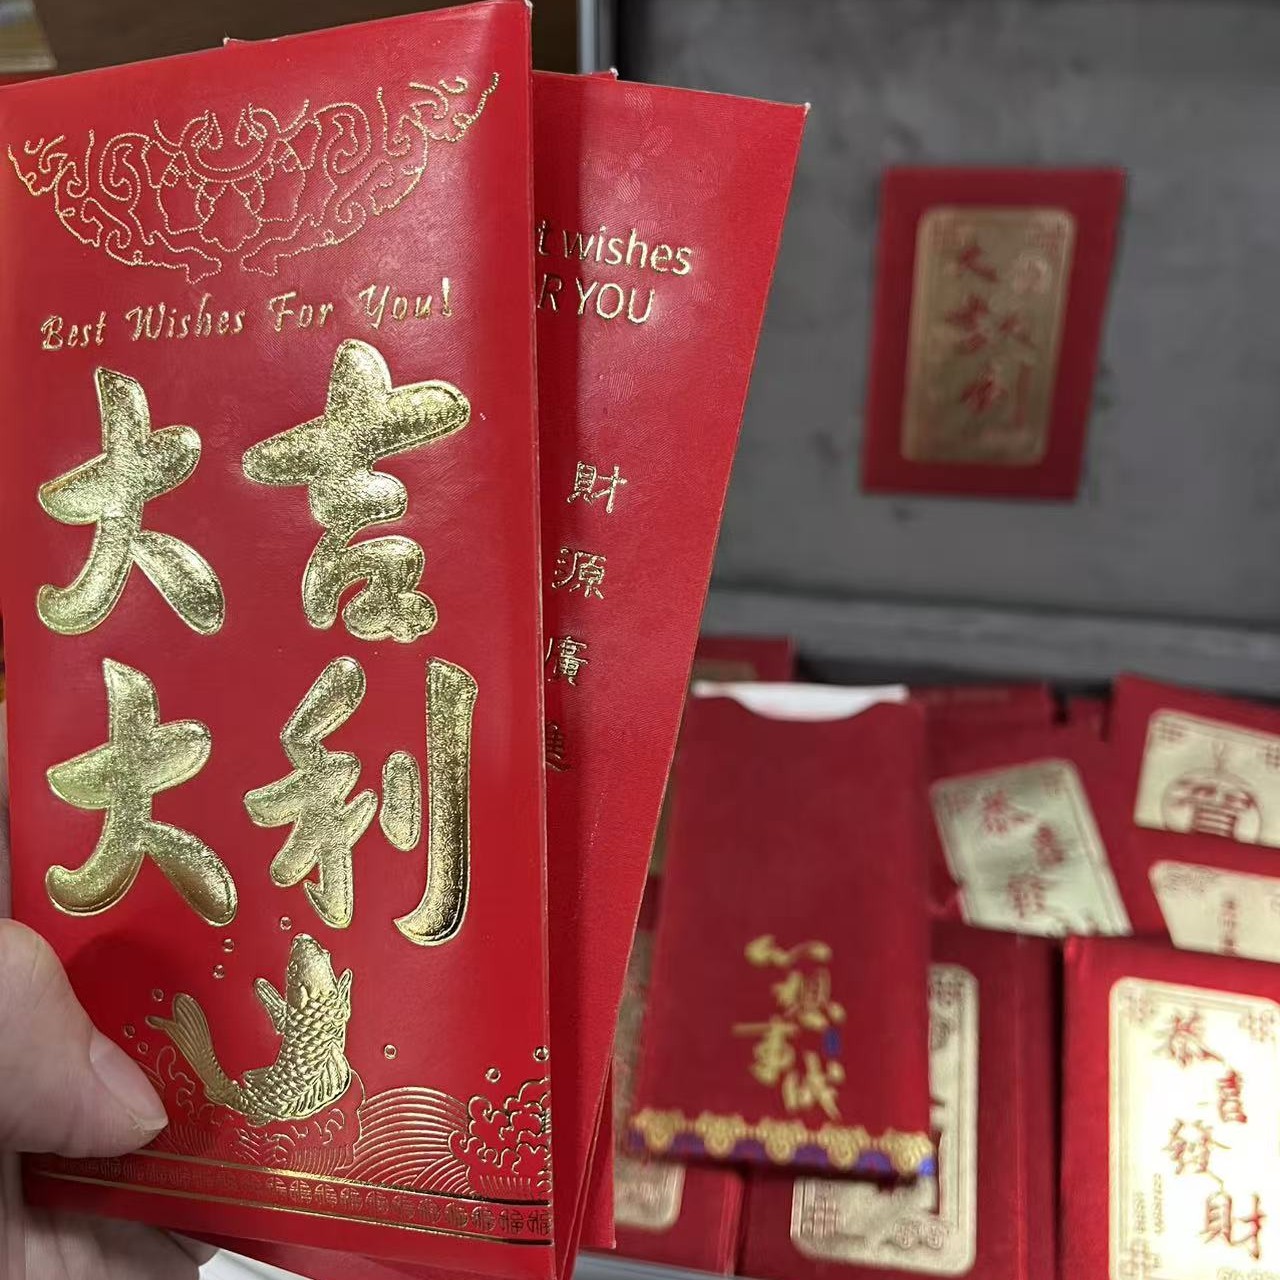 Best Wishes For You!
大吉
大利
t wishes
R YOU
財
源
廣
進
大吉大利
心想事成
恭喜發
賀
恭喜發財